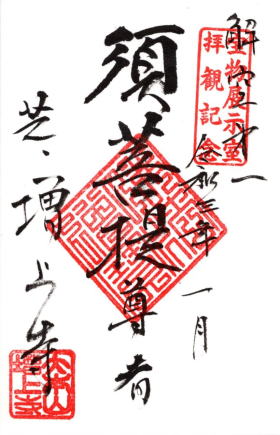 解空第一
宝物展示室
拝観記念
令和三年 一月
須菩提尊者
芝 増上寺
大本山
増上寺